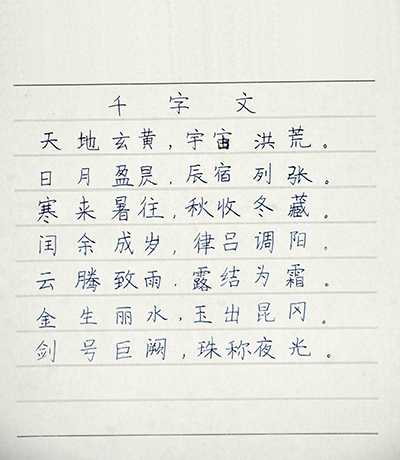 千字文
天地玄黄,宇宙洪荒。
日月盈昃,辰宿列张。
寒来暑往,秋收冬藏。
闰余成岁,律吕调阳。
云腾致雨.露结为霜。
金生丽水,玉出昆冈。
剑号巨阙,珠称夜光。